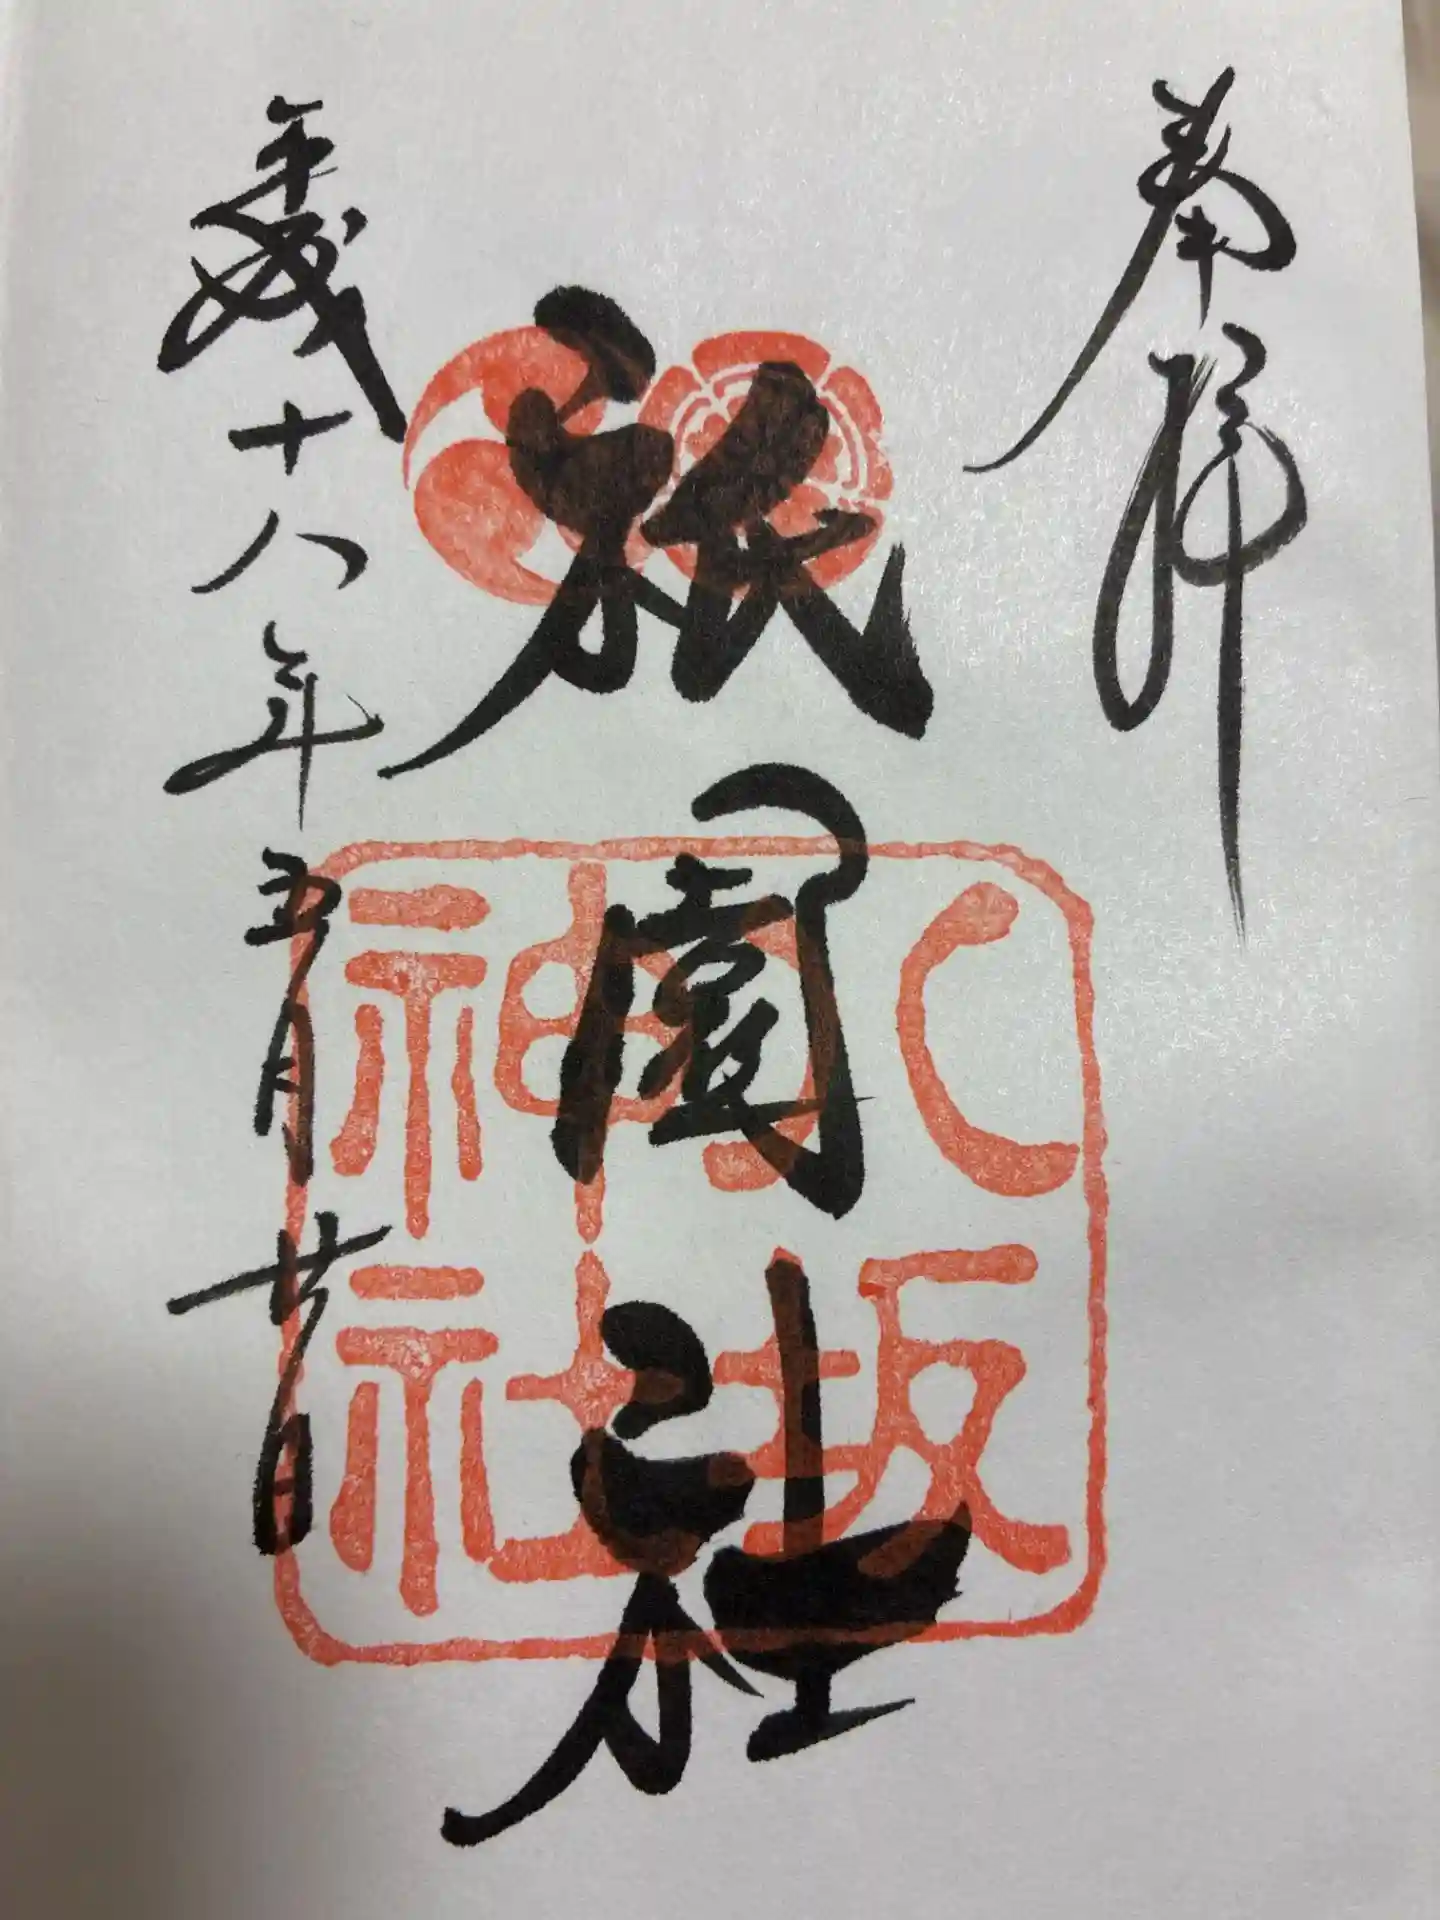 奉拝
祇園社
八坂
神社
平成十八年五月廿日